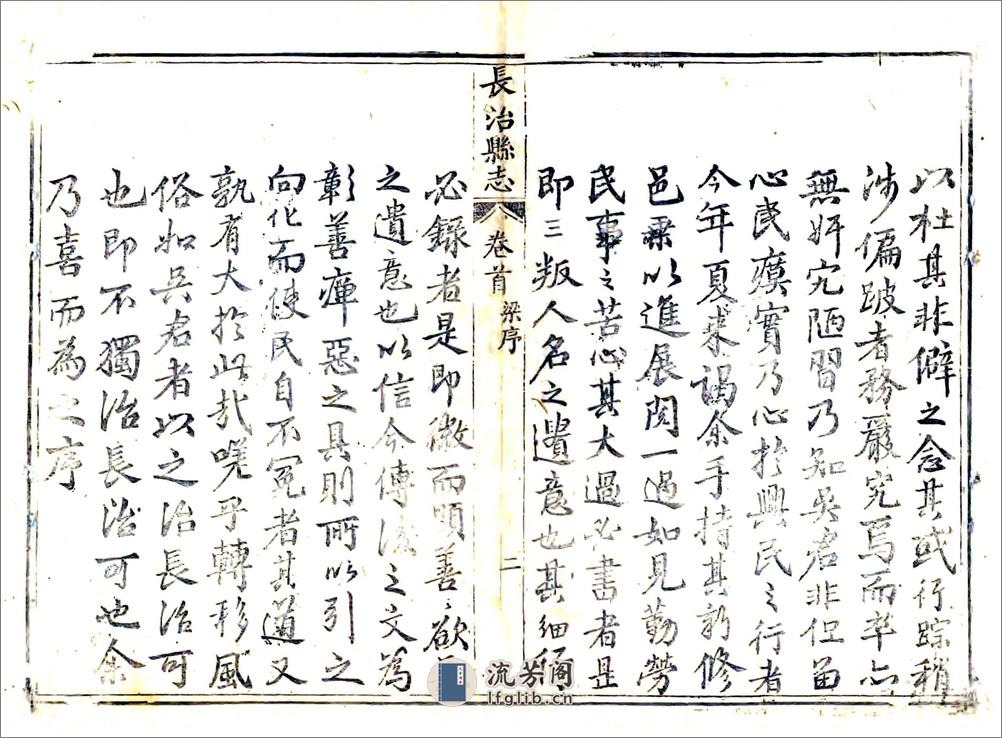 以杜其非僻之念其或行踪稍
涉偏跛者務嚴究焉而卒亦
無奸宄陋習乃知吳君非但留
心民瘼實乃心於興民之行者
今年夏來謁余手持其新修
邑乘以進展閱一過如見勤勞
民事之苦心其大過必書者是
即三叛人名之遺意也其細
長治縣志
卷首
梁序
二
必錄者是即微而顯善善欲
之遺意也以信今傳後之文為
彰善癉惡之具則所以引之
向化而使民自不冤者其道又
孰有大於此哉嗟乎轉移風
俗如吳君者以之治長治可
也即不獨治長治可也余
乃喜而為之序
流芳阁
lfglib.cn